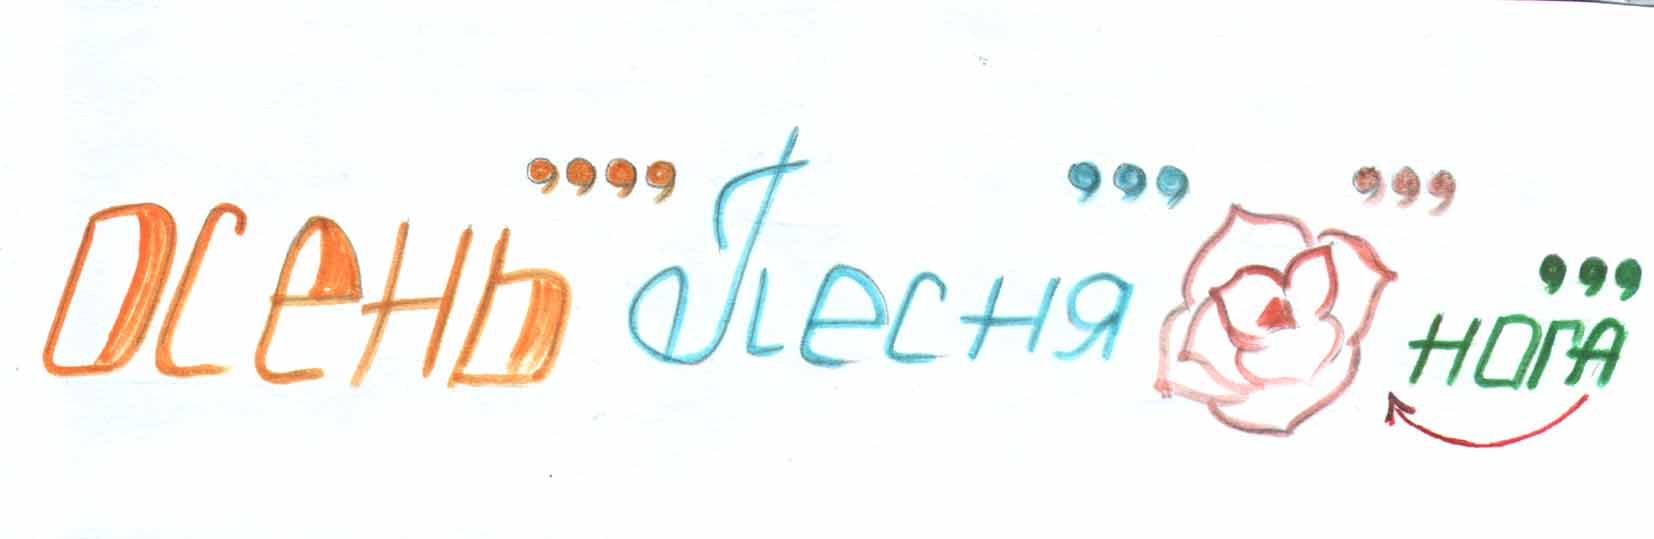 осень ,,,, Песня ,,, ,,, нога ,,,